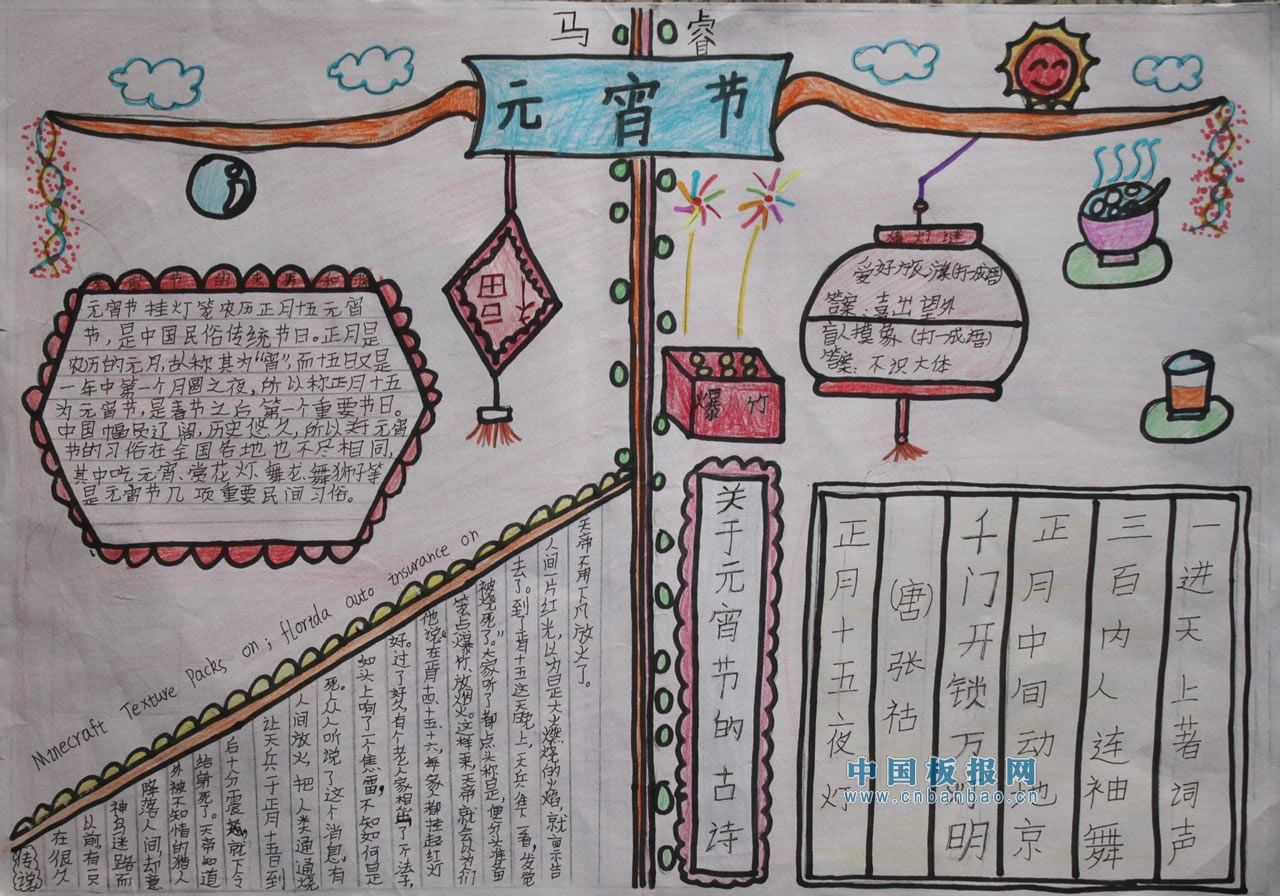 马睿
元宵节
元宵节的来男和
元宵节挂灯笼农历正月十五元宵
节，是中国民俗传统节日。正月是
农历的元月，故称其为“宵”，而十五日又是
一年中第一个月圆之夜，所以称正月十五
为元宵节，是春节之后第一个重要节日。
中国幅员辽阔，历史悠久，所以寿元宵
节的习俗在全国各地也不尽相同，
其中吃元宵、赏花灯、舞龙、舞狮子等
是元宵节几项重要民间习俗。
猜灯谜
爱好旅游(打一成语)
答案：喜出望外
盲人摸象(打一成语)
答案：不识大体
爆竹
Minecraft Texture Packs on; florida auto insurance on
传说
在很久
以前，有一只
神鸟迷路而
降落人间，却意
外被不知情的猎人
给射死了。天帝知道
后十分震怒，就下令
让天兵于正月十五日到
人间放火，把人类通通烧
死。众人听说了这个消息，有
如头上响了一个焦雷，不知如何是
好。过了好久，有个老人家想出了个方法，
他说“在正月十四、十五、十六每家都挂起红灯
笼、点爆竹、放烟火。这样来，天帝就会以为人们
被烧死了。”大家听了都点头称是，便分头准备
去了。到了正月十五这天晚上，天兵往下一看，发觉
人间一片红光，以为是大火燃烧的火焰，就禀告
天帝不用下凡放火了。
关于元宵节的古诗
正月十五夜灯
(唐)张祜
千门开锁万灯明
正月中旬动地京
三百内人连袖舞
一进天上著词声
中国板报网
www.cnbanbao.cn